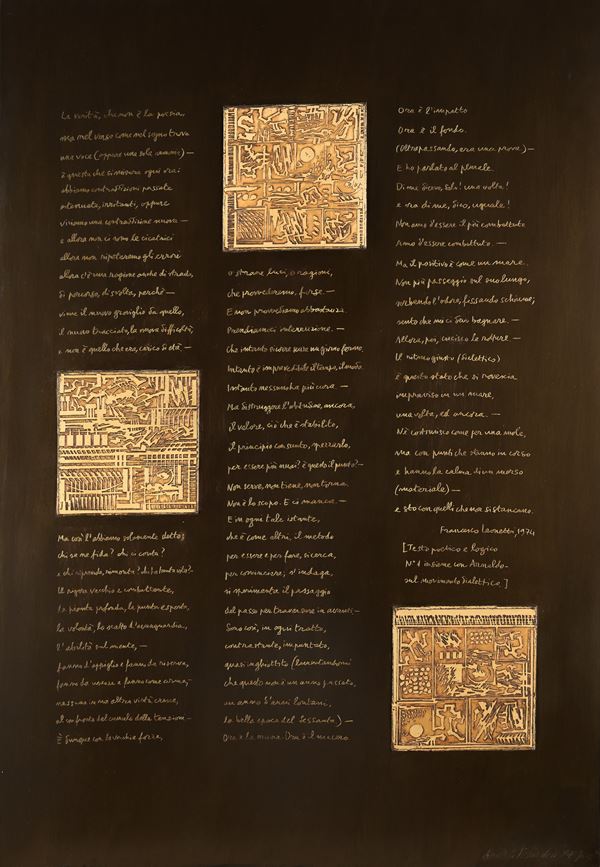 La verità, che non è la poesia,
ma nel verso come nel segno trova
una voce (oppure una sola
è questa che si misura ogni ora:
abbiamo contraddizioni passate
attenuate, irritanti, oppure
viviamo una contraddizione nuova —
e allora non ci sono le cicatrici
allora non ripeteremo gli errori
allora c'è una ragione anche di strada,
di percorso, di svolta, perchè —
viene il nuovo groviglio da quello,
il nuovo tracciato, la nuova difficoltà,
e non è quello che era, carico si dà —
Ma così l'abbiamo solamente detto;
chi se ne fida? chi ci conta?
e chi risponde,
Il vigore vecchio e combattente,
la pianta profonda, la punta esposta,
la volontà, lo scatto d'avanguardia,
l'abilità sul niente, —
fanno l'appiglio e fanno da riserva,
nessuna in no altra virtù cresce,
al confronto del cumulo della tensione —
È dunque con la vecchia forza,
o strane luci, o ragioni,
che provvederemo, forse. —
E non provvediamo abbastanza.
che intanto
Intanto è imprevedibile il tempo, il modo.
Intanto nessuno ha più cura. —
Ma distruggere l'abitudine, ancora,
il valore, ciò che è stabilito,
il principio consunto, spezzarlo,
per essere più nuovi? è questo il punto? —
Non serve, non tiene, non torna.
Non è lo scopo. E ci manca. —
E in ogni tale istante,
che è come altri, il metodo
per essere e per fare, si cerca,
per convincere; s'indaga,
si sperimenta il passaggio
del passo per traversare in avanti —
Sono così, in ogni tratto,
contrastante, impuntato,
quasi inghiottito (lamentandomi
che questo non è un anno passato,
un anno d'anni lontani,
la bella epoca del Sessanta) —
Ora è la nuova. Ora è il nuovo
Ora è l'impatto
Ora è il fondo.
(Oltrepassando, era una prova) —
E ho parlato al plurale.
Di me dicevo, solo! una volta!
e ora di me, dico, uguale!
Non amo d'essere il più combattuto
Amo d'essere combattuto. —
Ma il positivo è come un mare.
Non più passeggio sul suo lungo,
sorbendo l'odore, fissando schiuma;
sento che mi ci devo bagnare. —
Allora, poi, cucisco le rotture —
Il ritmo giusto (dialettico)
è questo stato che si rovescia
improvviso in un mare,
una volta, ed ancora. —
Nè costruisco come per una mole,
ma con punti che stanno in corso
e hanno la calma di un morso
(materiale) —
e sto con quelli che non si stancano.
Francesco Leonetti, 1974
[Testo poetico e logico
N° 1 insieme con Arnaldo
sul movimento dialettico.]